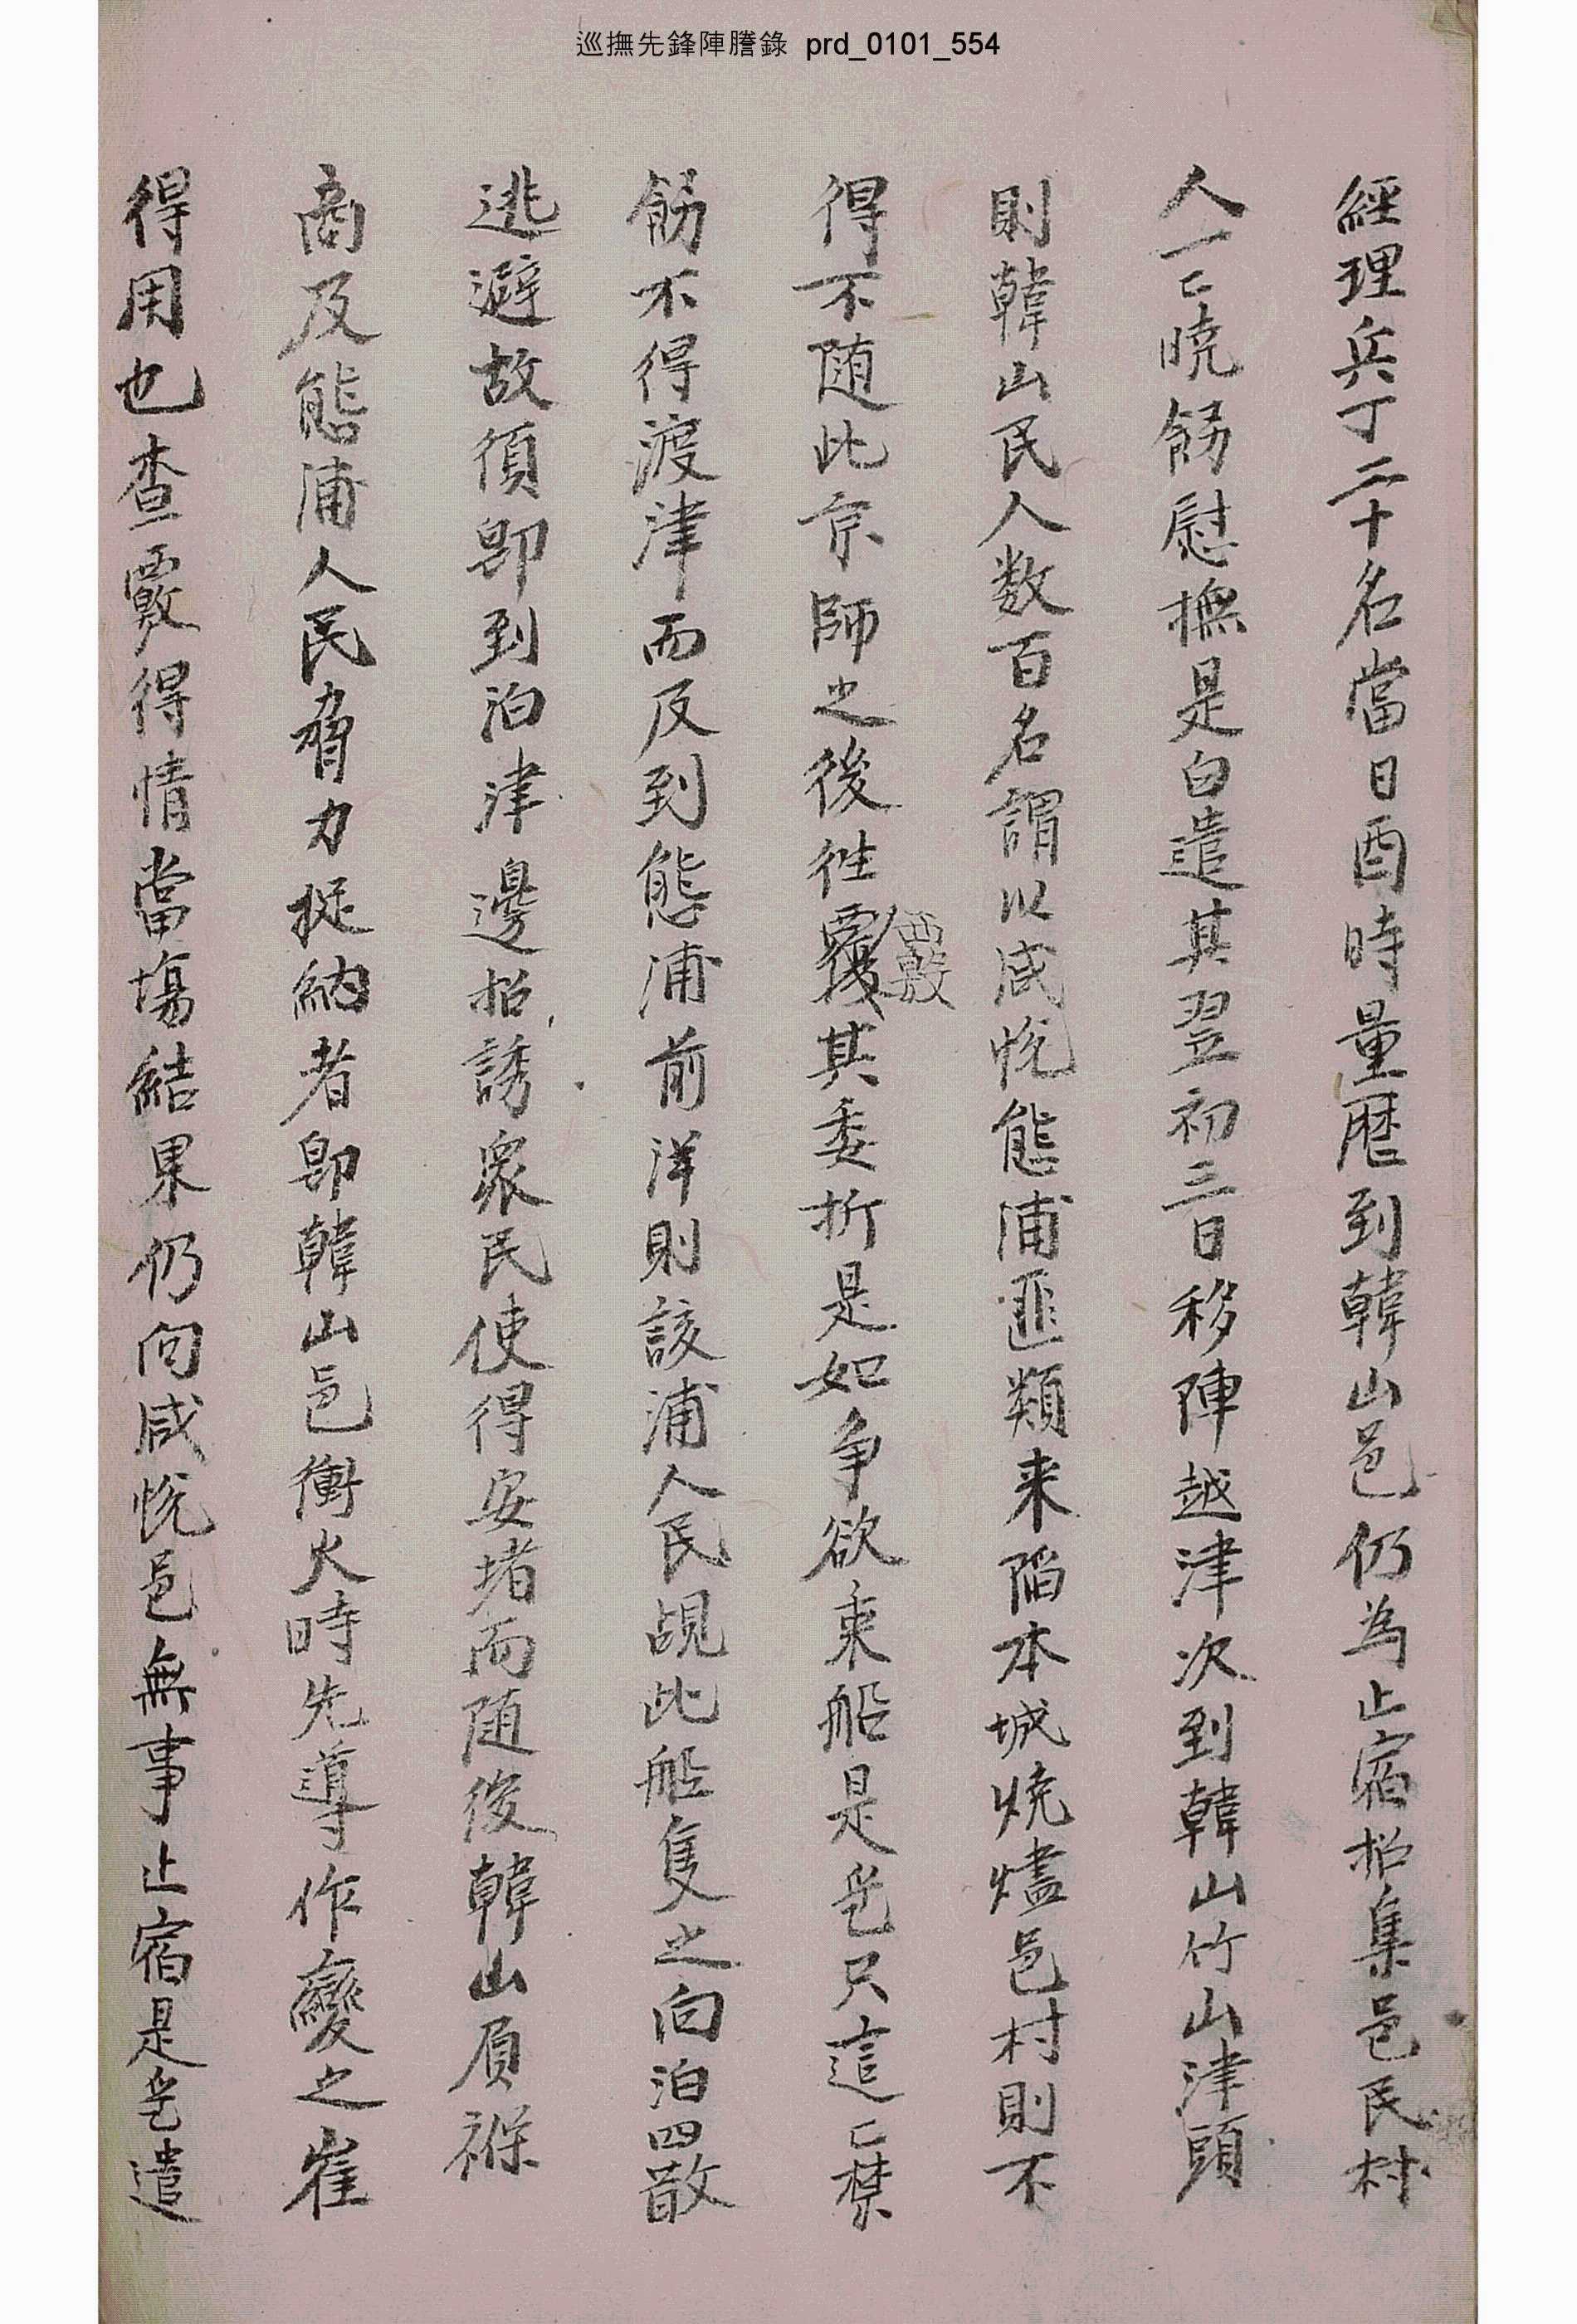 巡撫先鋒陣謄錄 prd_0101_554
經理兵丁二十名當日酉時量曆到韓山邑仍為止宿招集邑民村
人一〻暁飭慰撫是白遣其翌初三日移陣越津次到韓山竹山津頭
則韓山民人数百名謂以咸悅態浦匪類来陷本城燒燼邑村則不
得不随此京師之後徃覆其委折是如爭欲束船是乎只這〻禁
覈
飭不得渡津而反到態浦前洋則該浦人民覘此船隻之向泊四散
逃避故須卽到泊津邊招誘衆民使得安堵而随後韓山負褓
商及態浦人民脅力捉納者卽韓山邑衝火時先導作變之崔
得用也查覈得情當塲結果仍向咸悅邑無事止宿是乎遣